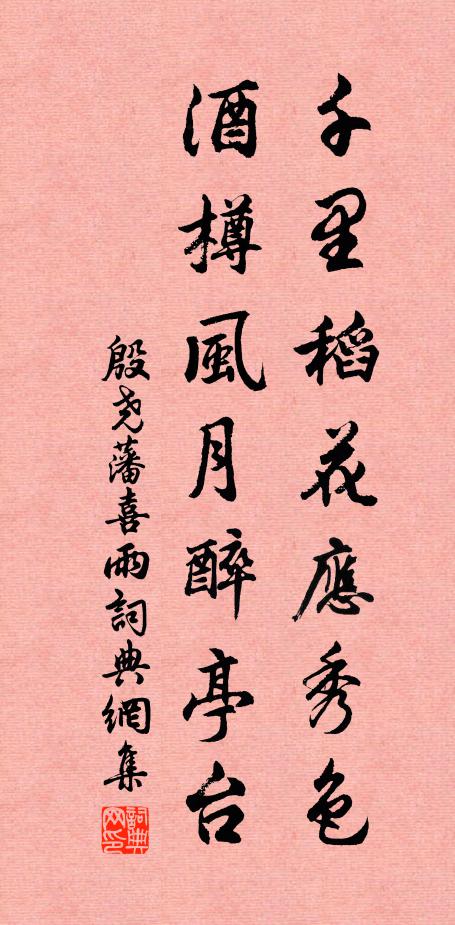 千里稻花應秀色
酒樽風月醉亭台
殷尧藩喜雨詞典網集
詞典
网印